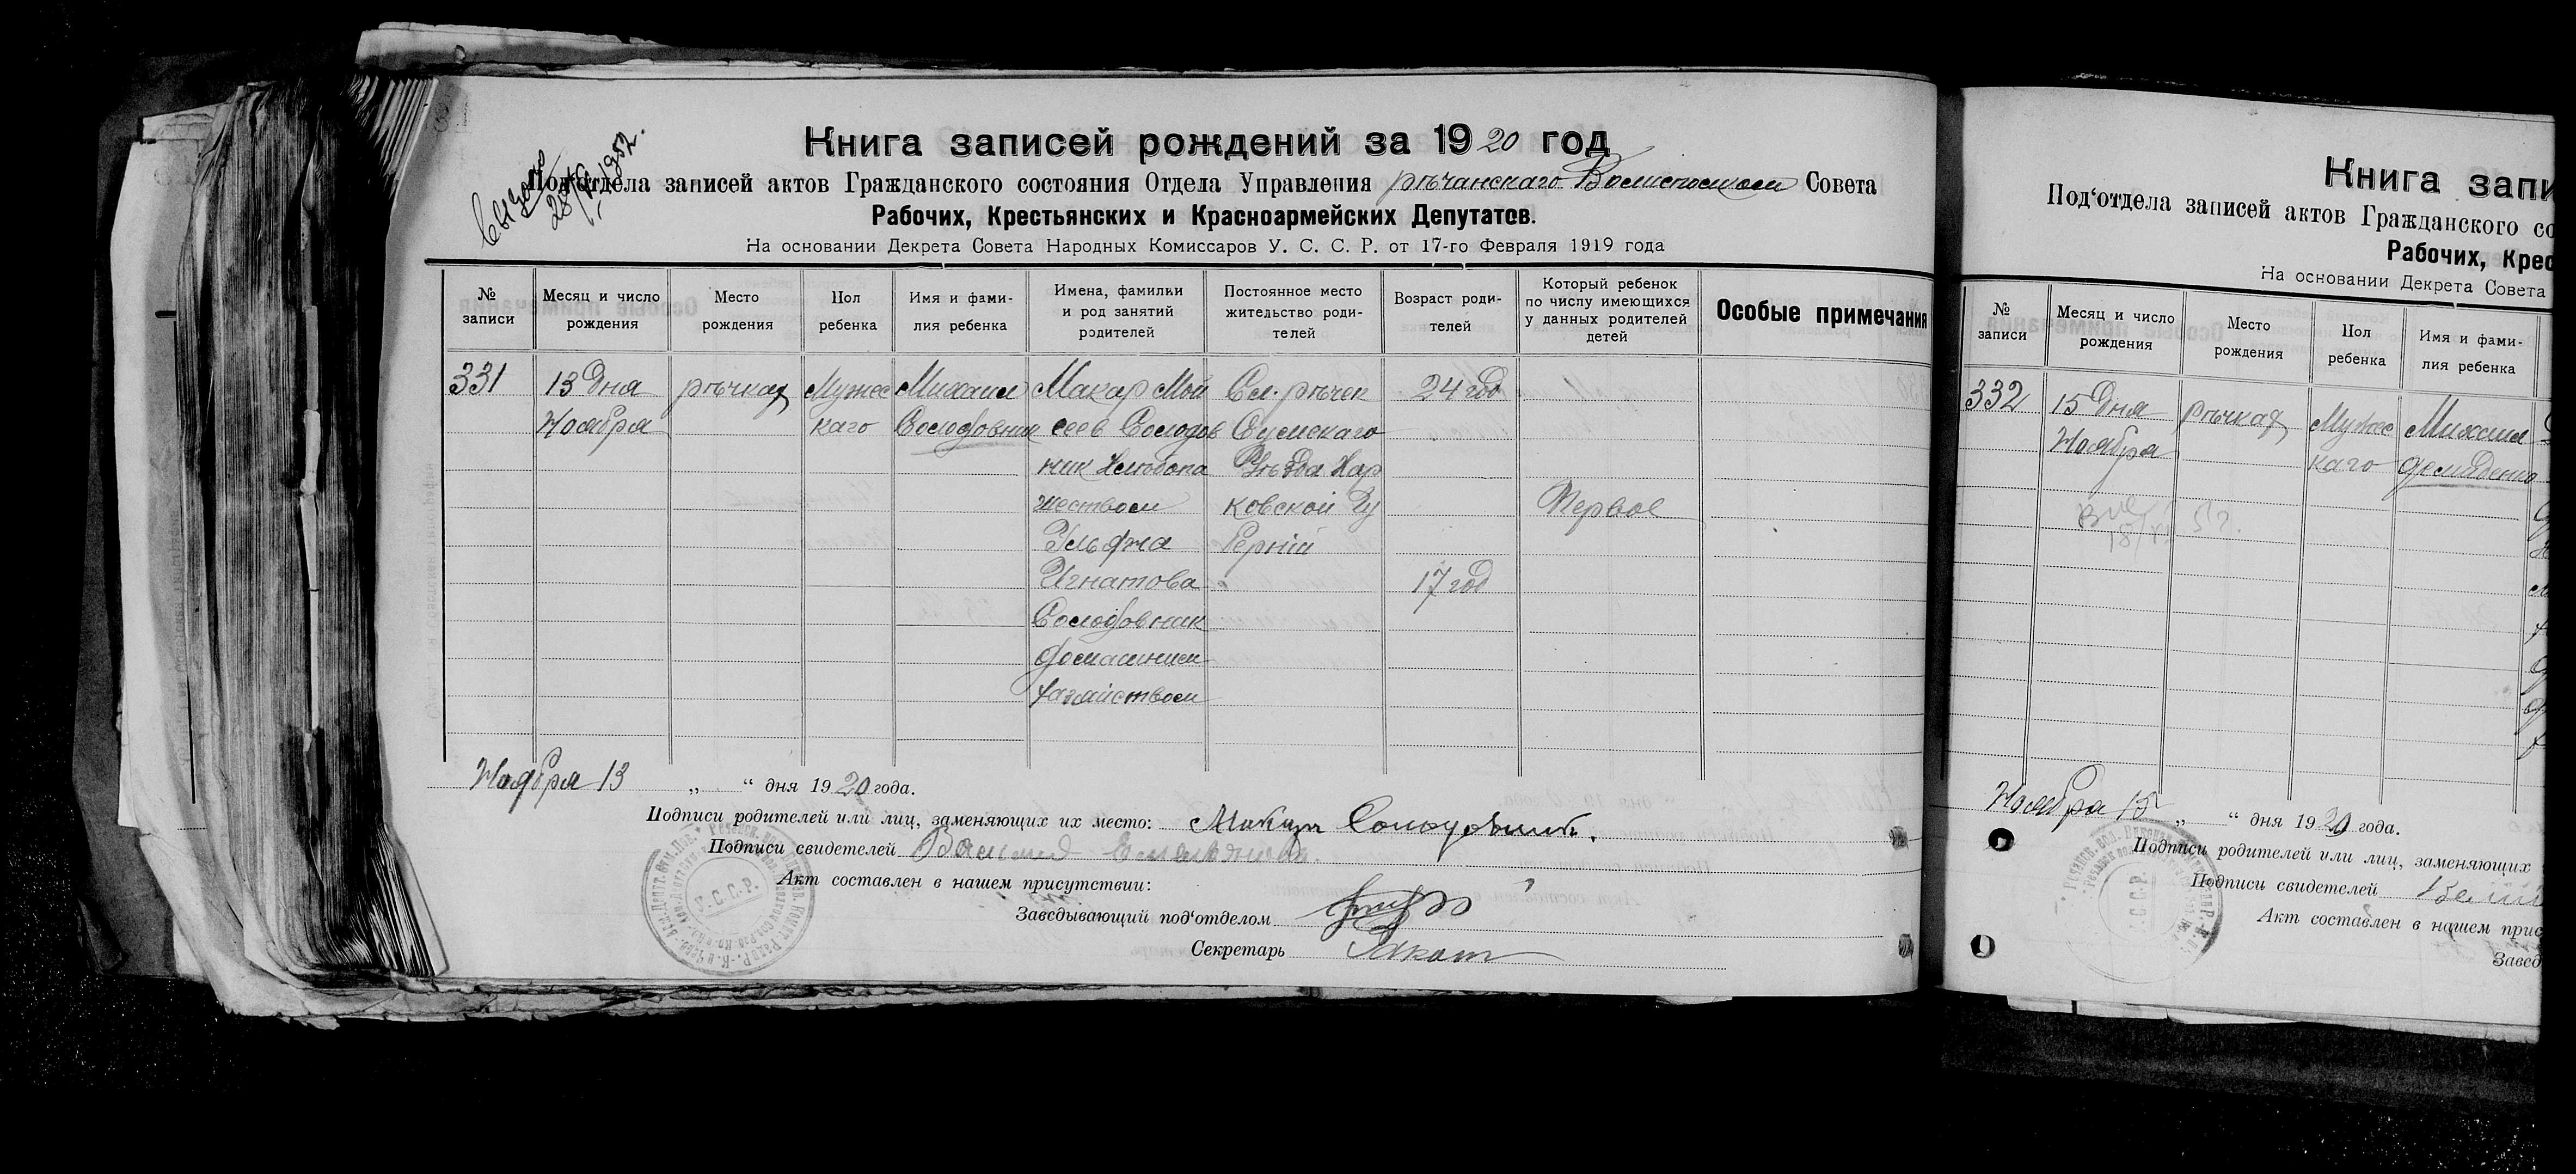 Книга записей рождений за 1920 год
Под'отдела записей актов Гражданского состояния Отдела Управления рѣчанскаго Совета
Рабочих, Крестьянских и Красноармейских Депутатов.
На основании Декрета Совета Народных Комиссаров У. С. С. Р. от 17-го Февраля 1919 года
№ записи
Месяц и число рождения
Место рождения
Пол ребенка
Имя и фами-
лия ребенка
Имена, фамилии
и род занятий
родителей
Постоянное место
жительство роди-
телей
Возраст роди-
телей
Который ребенок
по числу имеющихся
у данных родителей
детей
Особые примечания
331
13 дня
Ноября
рѣчках
Мужес
каго
Михаил
Солодовник
Макар Мой
сеев Солодов
ник Хлебопа
шеством
Ульяна
Игнатова
Солодовник
домашним
хазяйством
Сл. рѣчек
Сумскаго
Уѣзда Хар
ковской Гу
берніи
24 год
17 год
Первое
Ноября 13 „ “ дня 1920 года.
Подписи родителей или лиц, заменяющих их место: Макар Солодовник.
Подписи свидетелей
Акт составлен в нашем присутствии:
Заведывающий под'отделом
Секретарь
Книга запи
Под'отдела записей актов Гражданского со
Рабочих, Крес
На основании Декрета Совета
№ записи
Месяц и число рождения
Место рождения
Пол ребенка
Имя и фами-
лия ребенка
332
15 дня
Ноября
Рѣчках
Мужес
каго
Михаил
Демиденко
Ноября 15 „ “ дня 1920 года.
Подписи родителей или лиц, заменяющих
Подписи свидетелей
Акт составлен в нашем прис
Завед